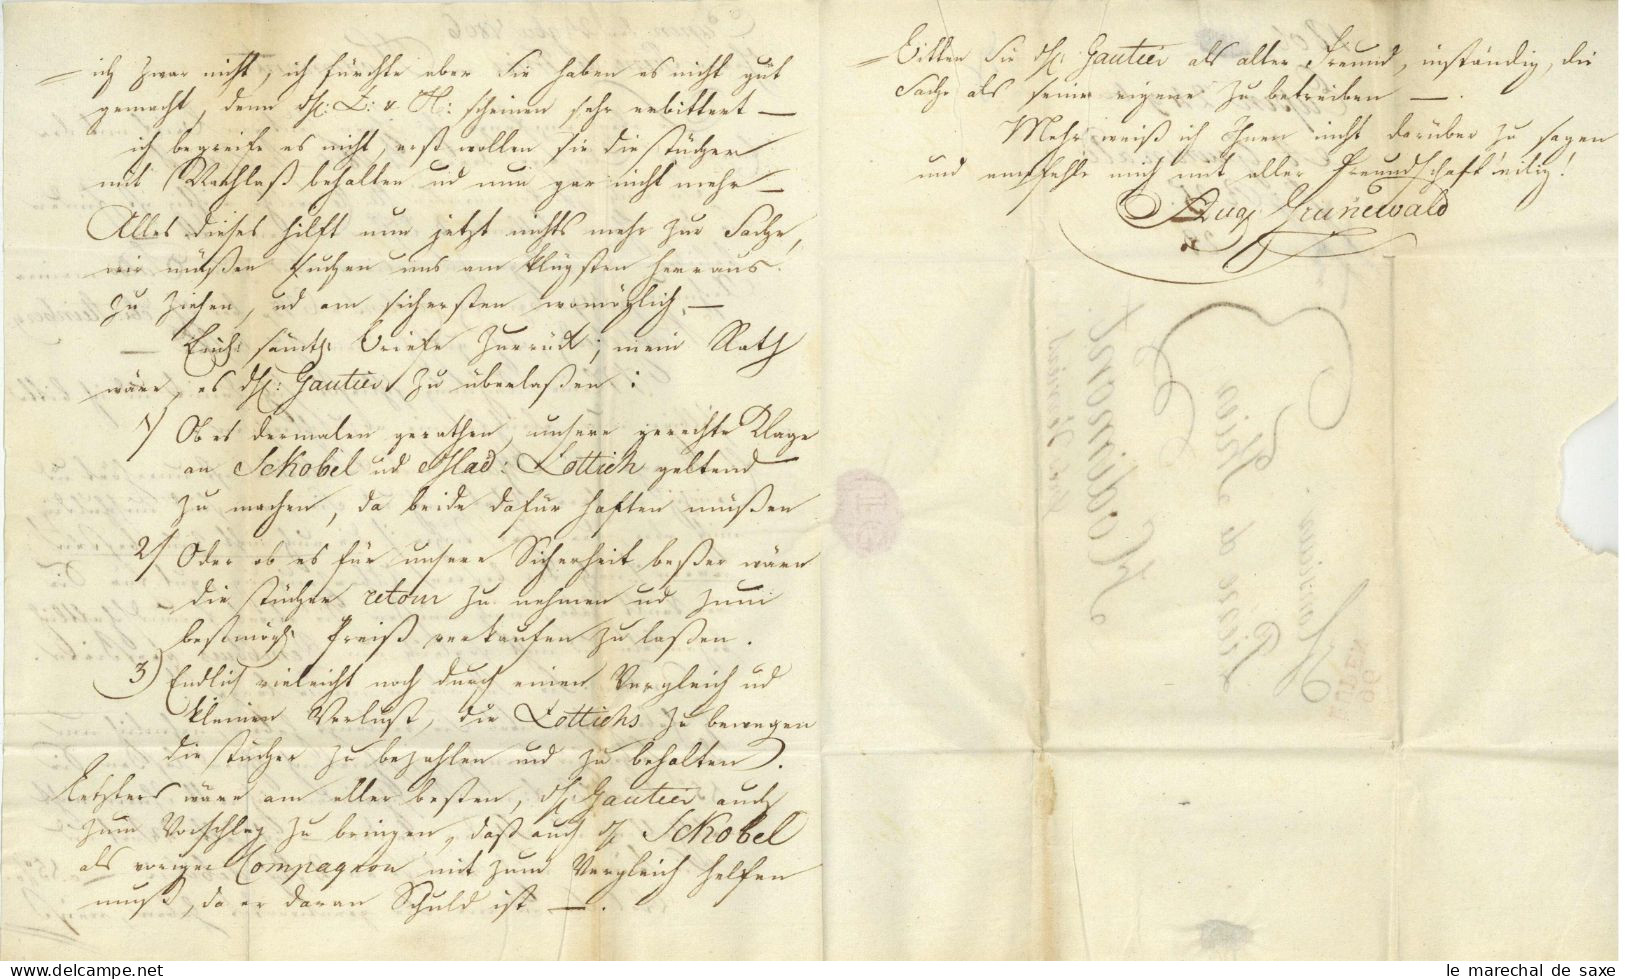 ich zwar nicht, ich fürchte aber Sie haben es nicht gut
gemacht, denn H: L: v. H: scheinen sehr erbittert —
ich begreife es nicht, erst wollen sie die Tücher
mit Nachlaß behalten ud nun gar nicht mehr —
Alles dieses hilft nun jetzt nichts mehr zur Sache,
wir müßen suchen uns am klügsten herraus
zu ziehen, ud am sichersten womöglich. —
sämtl: Briefe zurück; mein Rath
wäre, es H: Gautier zu überlaßen:
1/ Ob es dermalen gerathen, unsere gerechte Klage
an Schobel ud Mad: Lottich geltend
zu machen, da beide dafür haften müßen
2/ Oder ob es für unsere Sicherheit beßer wäre
die Tücher retour zu nehmen ud zum
bestmögl: Preiß verkaufen zu laßen.
3) Endlich vieleicht noch durch einen Vergleich ud
kleinen Verlust, die Lottichs zu bewegen
die Tücher zu bezahlen und zu behalten.
Letzters wäre am aller besten, H: Gautier auch
zum Vorschlag zu bringen, daß auch H: Schobel
als voriger Compagnon mit zum Vergleich helfen
muß, da er daran Schuld ist —.
Bitten Sie H: Gautier als alter Freund, inständig, die
Sache als seine eigene zu betreiben —.
Mehr weiß ich Ihnen nicht darüber zu sagen
und empfehle mich mit aller Freundschaft eilig!
Aug. Grunewald
le marechal de saxe
www.delcampe.net